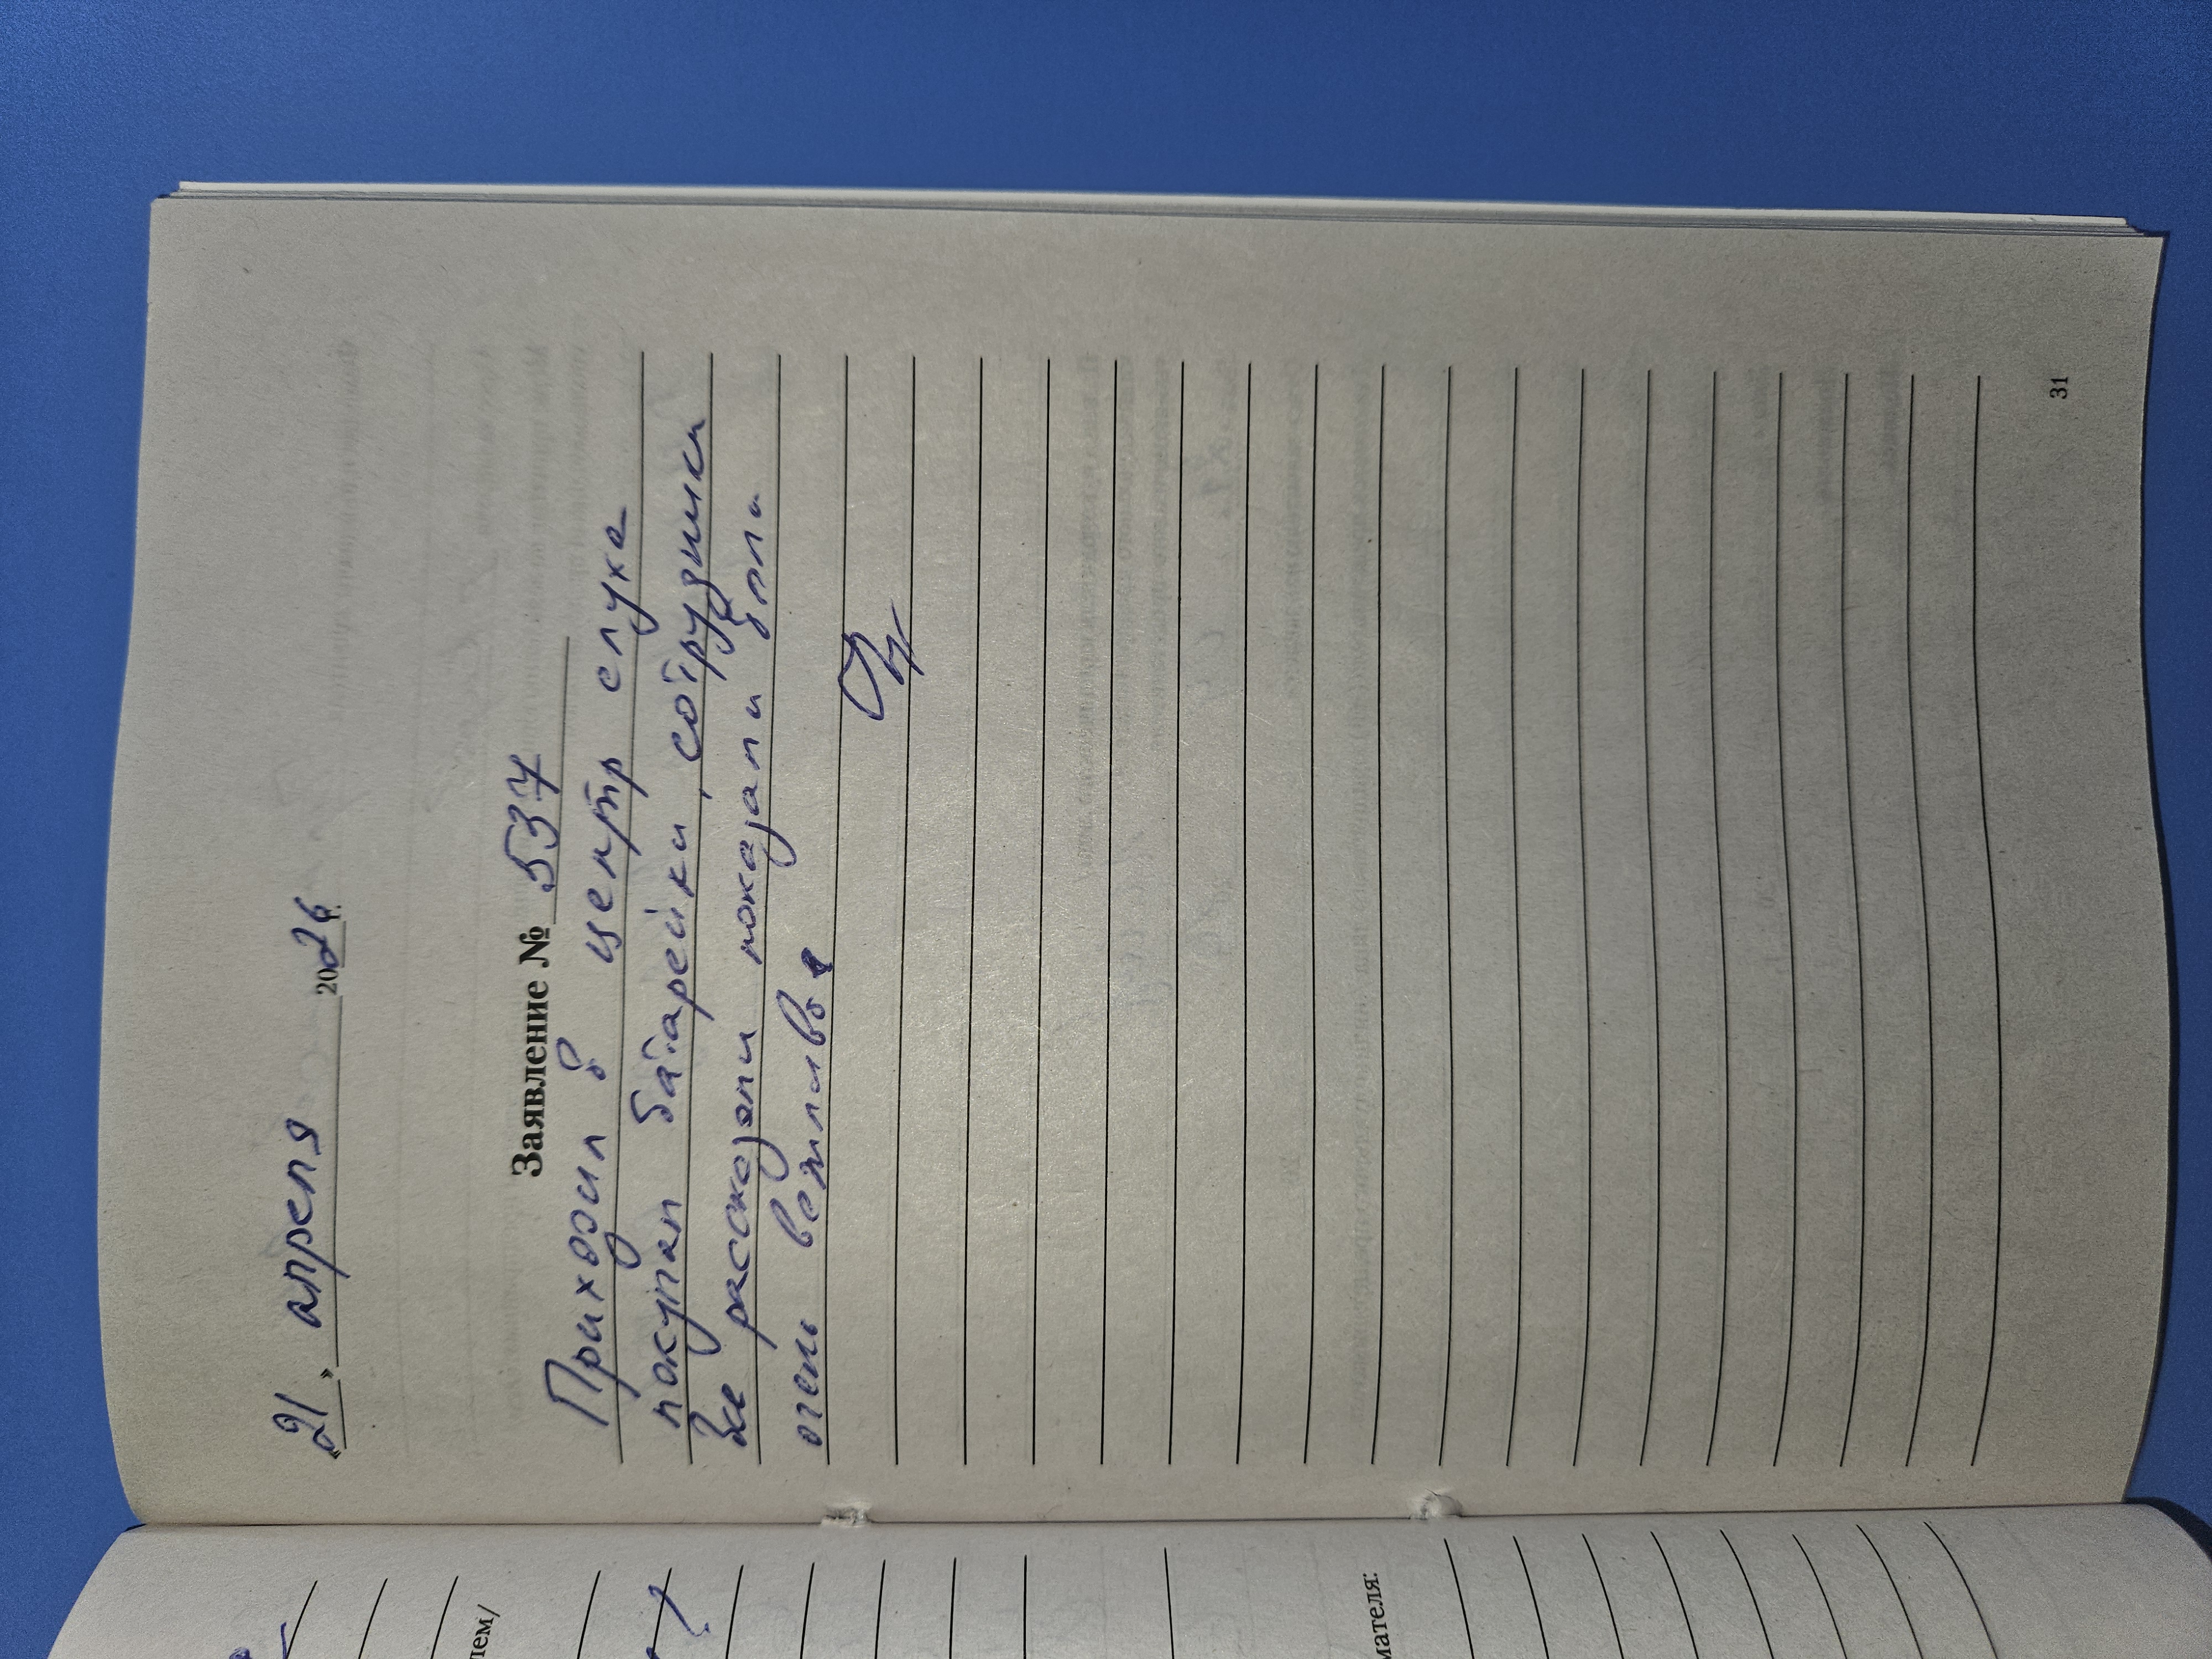 «21» апреля 2026 г.
Заявление № 537
Приходил в центр слуха
покупал батарейки, сотрудники
все рассказали показали и были
очень вежливы
31
лем/
мателя: